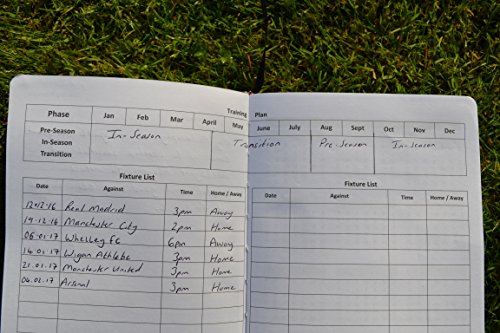 Training Plan
Phase Jan Feb Mar April May June July Aug Sept Oct Nov Dec
Pre-Season
In-Season
Transition
In-Season Transition Pre-Season In-Season
Fixture List
Date Against Time Home / Away
12-12-16 Real Madrid 3pm Away
19-12-16 Manchester City 2pm Home
06-01-17 Whelley FC 6pm Away
14-01-17 Wigan Athletic 3pm Home
21-01-17 Manchester United 3pm Home
04-02-17 Arsenal 3pm Home
Fixture List
Date Against Time Home / Away